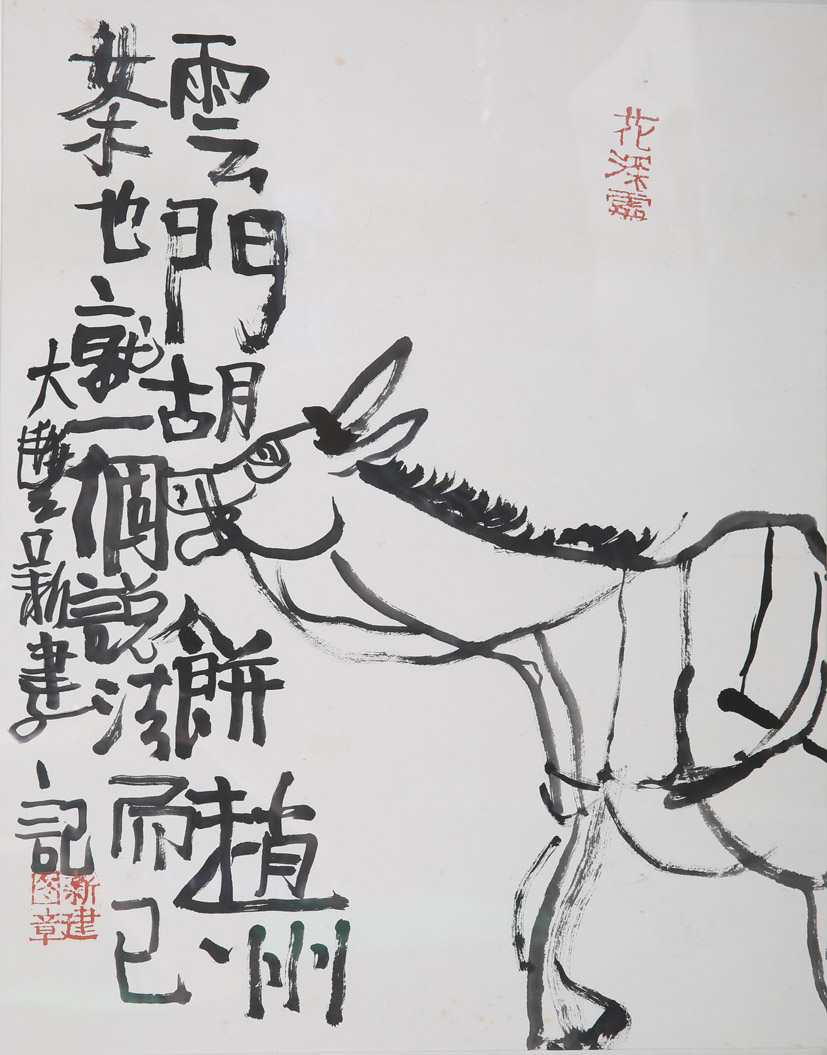 花深
雲門胡餅趙州
茶也就一個説法而已
大 新建記
新建图章